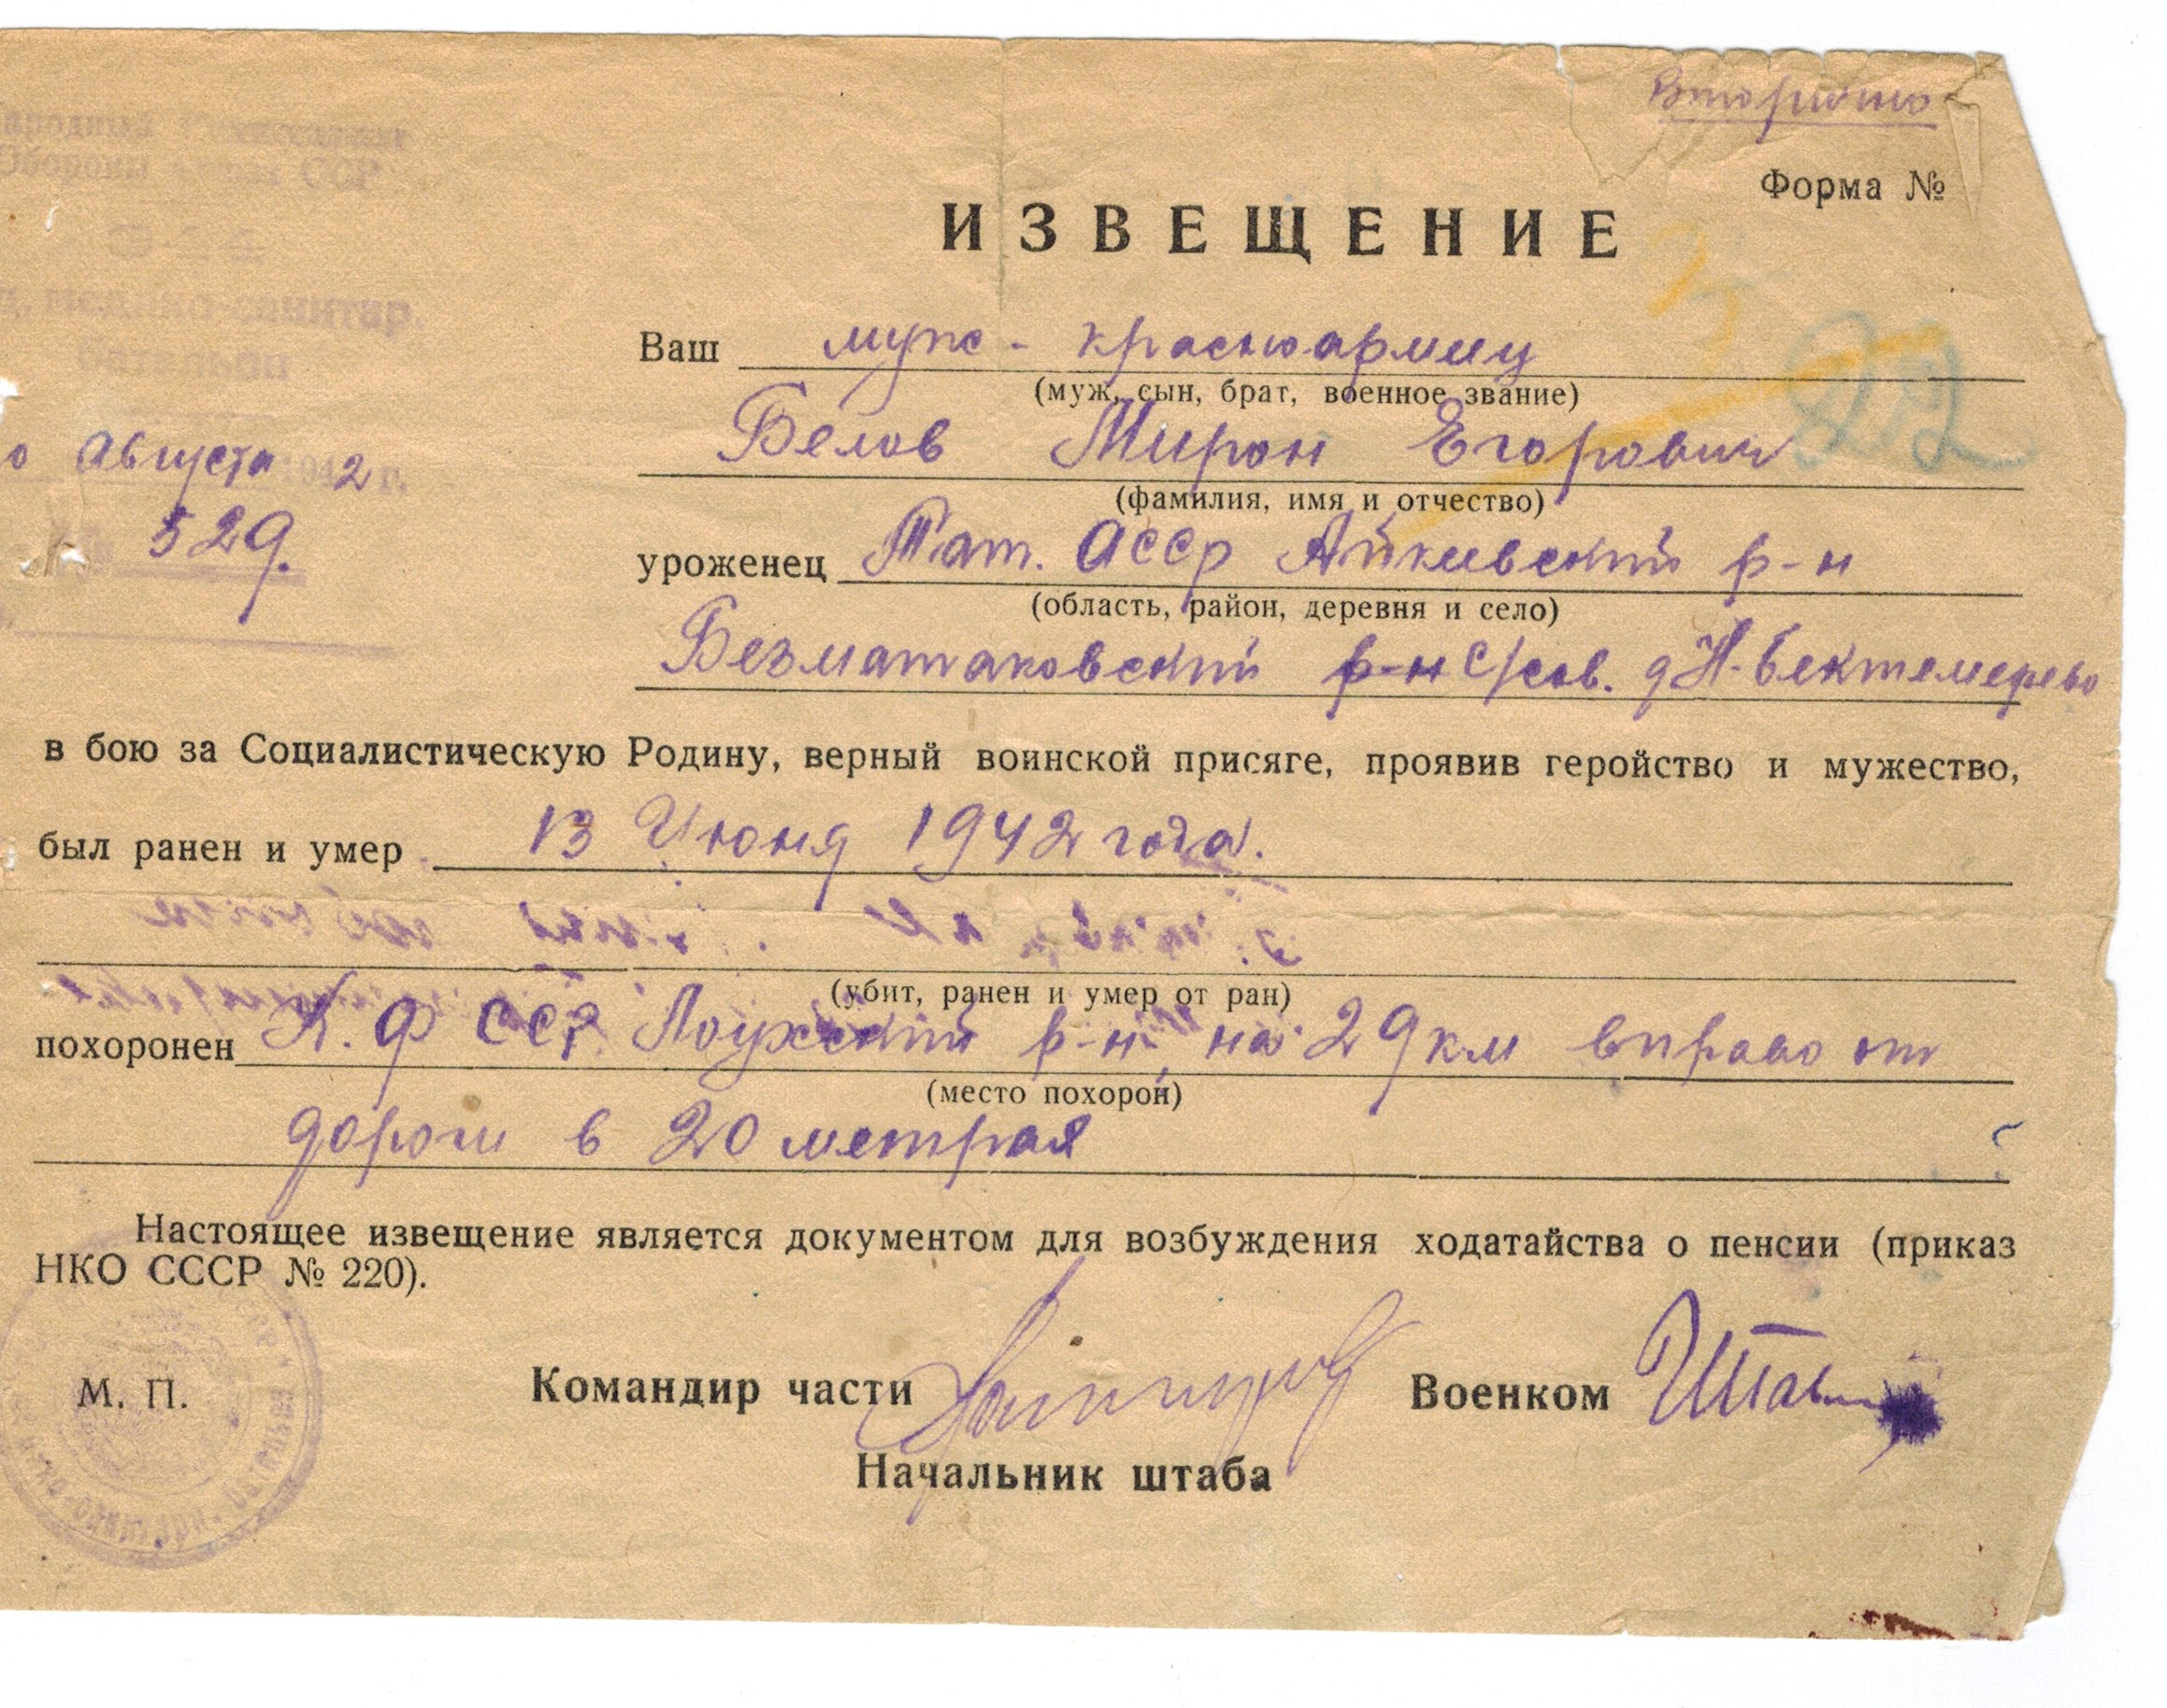 Вторично
Форма №
Оборони ССР
ИЗВЕЩЕНИЕ
медико-санитар.
батальон
Ваш муж - красноармиц
(муж, сын, брат, военное звание)
Белов Мирон Егорович
(фамилия, имя и отчество)
Августа 1942 г.
№ 529.
уроженец Тат. АССР Айкивский р-н
(область, район, деревня и село)
Безматаковский р-н С/сов. д Н-Бектемерево
в бою за Социалистическую Родину, верный воинской присяге, проявив геройство и мужество,
был ранен и умер 13 Июня 1942 года.
(убит, ранен и умер от ран)
похоронен К. Ф ССР Лоухский р-н, на 29 км вправо от
(место похорон)
дороги в 20 метрах
Настоящее извещение является документом для возбуждения ходатайства о пенсии (приказ
НКО СССР № 220).
М. П.
Командир части
Военком
Начальник штаба
22